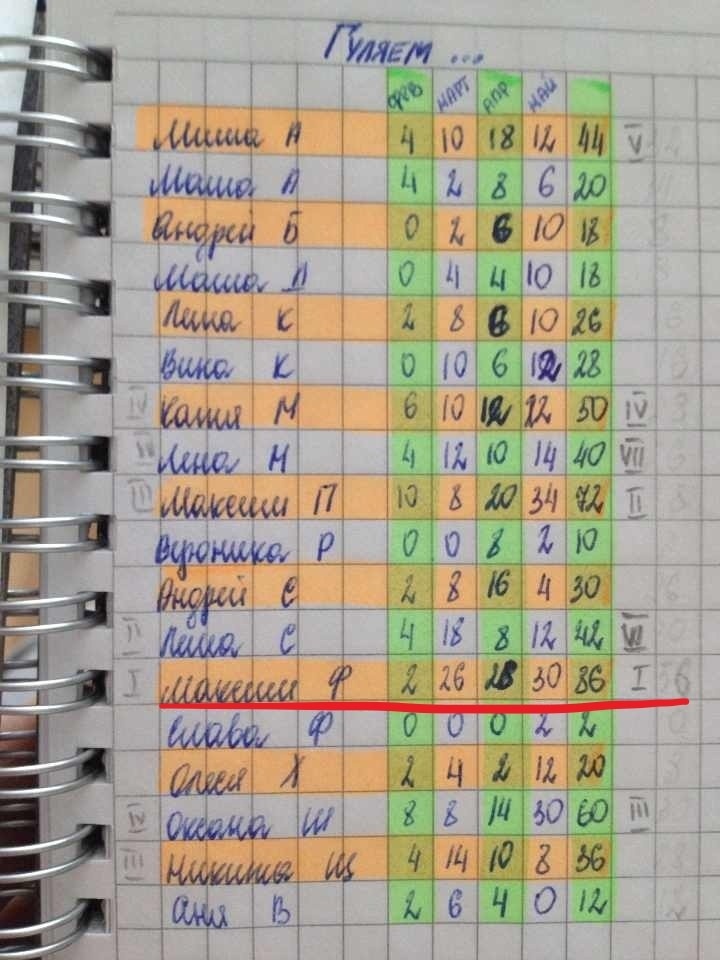 Гуляем ...
ФЕВ МАРТ АПР МАЙ
Миша А 4 10 18 12 44 V
Маша А 4 2 8 6 20
Андрей Б 0 2 6 10 18
Маша Д 0 4 4 10 18
Лина К 2 8 6 10 26
Вика К 0 10 6 12 28
IV Катя М 6 10 12 22 50 IV
Лена Н 4 12 10 14 40 VII
III Максим П 10 8 20 34 72 II
Вероника Р 0 0 8 2 10
Андрей С 2 8 16 4 30
II Лиша С 4 18 8 12 42 VI
I Максим Ф 2 26 28 30 86 I
Слава Ф 0 0 0 2 2
Олеся Х 2 4 2 12 20
IV Оксана Ш 8 8 14 30 60 III
III Никита Щ 4 14 10 8 36
Аня В 2 6 4 0 12